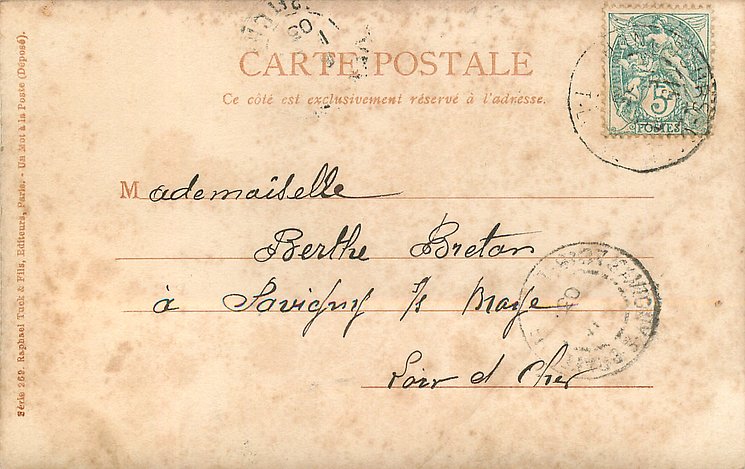 CARTE POSTALE
Ce côté est exclusivement réservé à l'adresse.
5
POSTES
Mademoiselle
Berthe Breton
à Savigny s/s Maye
Loir et Cher
Série 269. Raphael Tuck & Fils, Editeurs, Paris. - Un Mot à la Poste (Déposé).